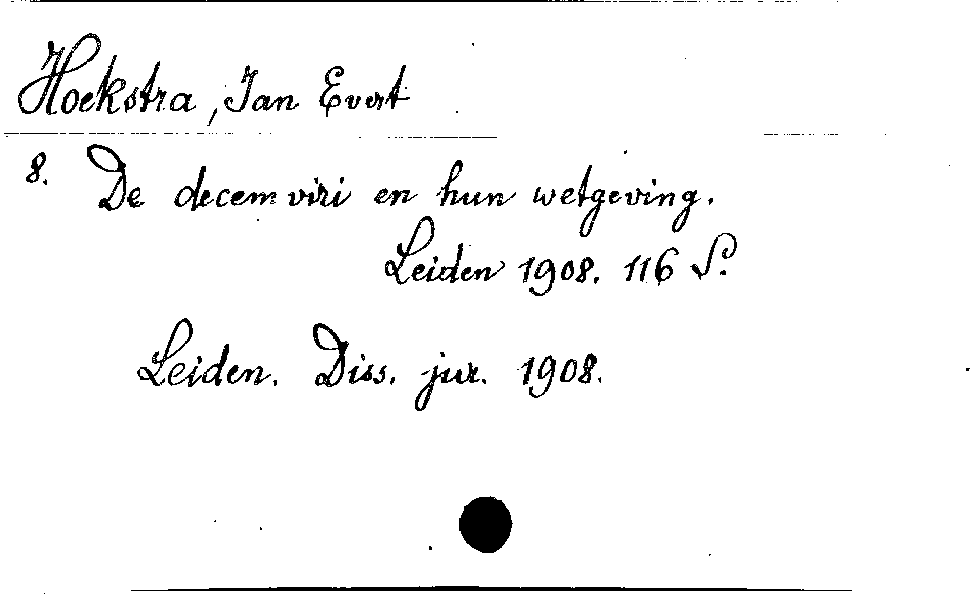 Hoekstra, Jan Evert
8. De decemviri en hun wetgeving.
Leiden 1908. 116 S.
Leiden. Diss. jur. 1908.